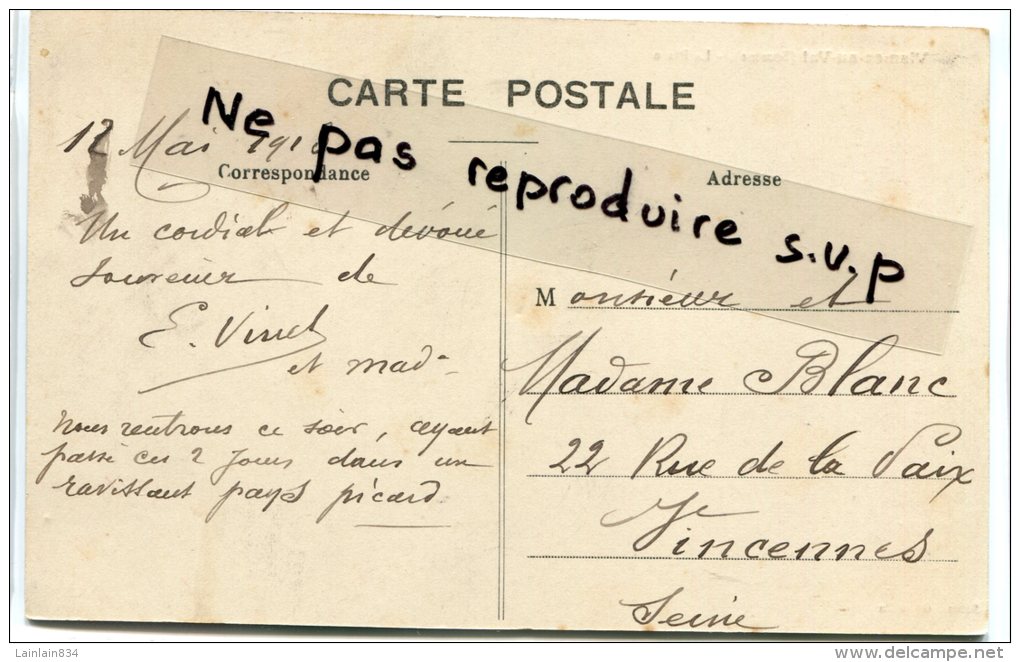 CARTE POSTALE
Ne pas reproduire s.v.p
12 Mai
Correspondance
Un cordial et dévoué
souvenir de
E.
et mad
Nous rentrons ce soir, ayant
passé ces 2 jours dans un
ravissant pays picard
Adresse
Monsieur et
Madame Blanc
22 Rue de la Paix
Vincennes
Seine
Lainlain834
delcampe.net